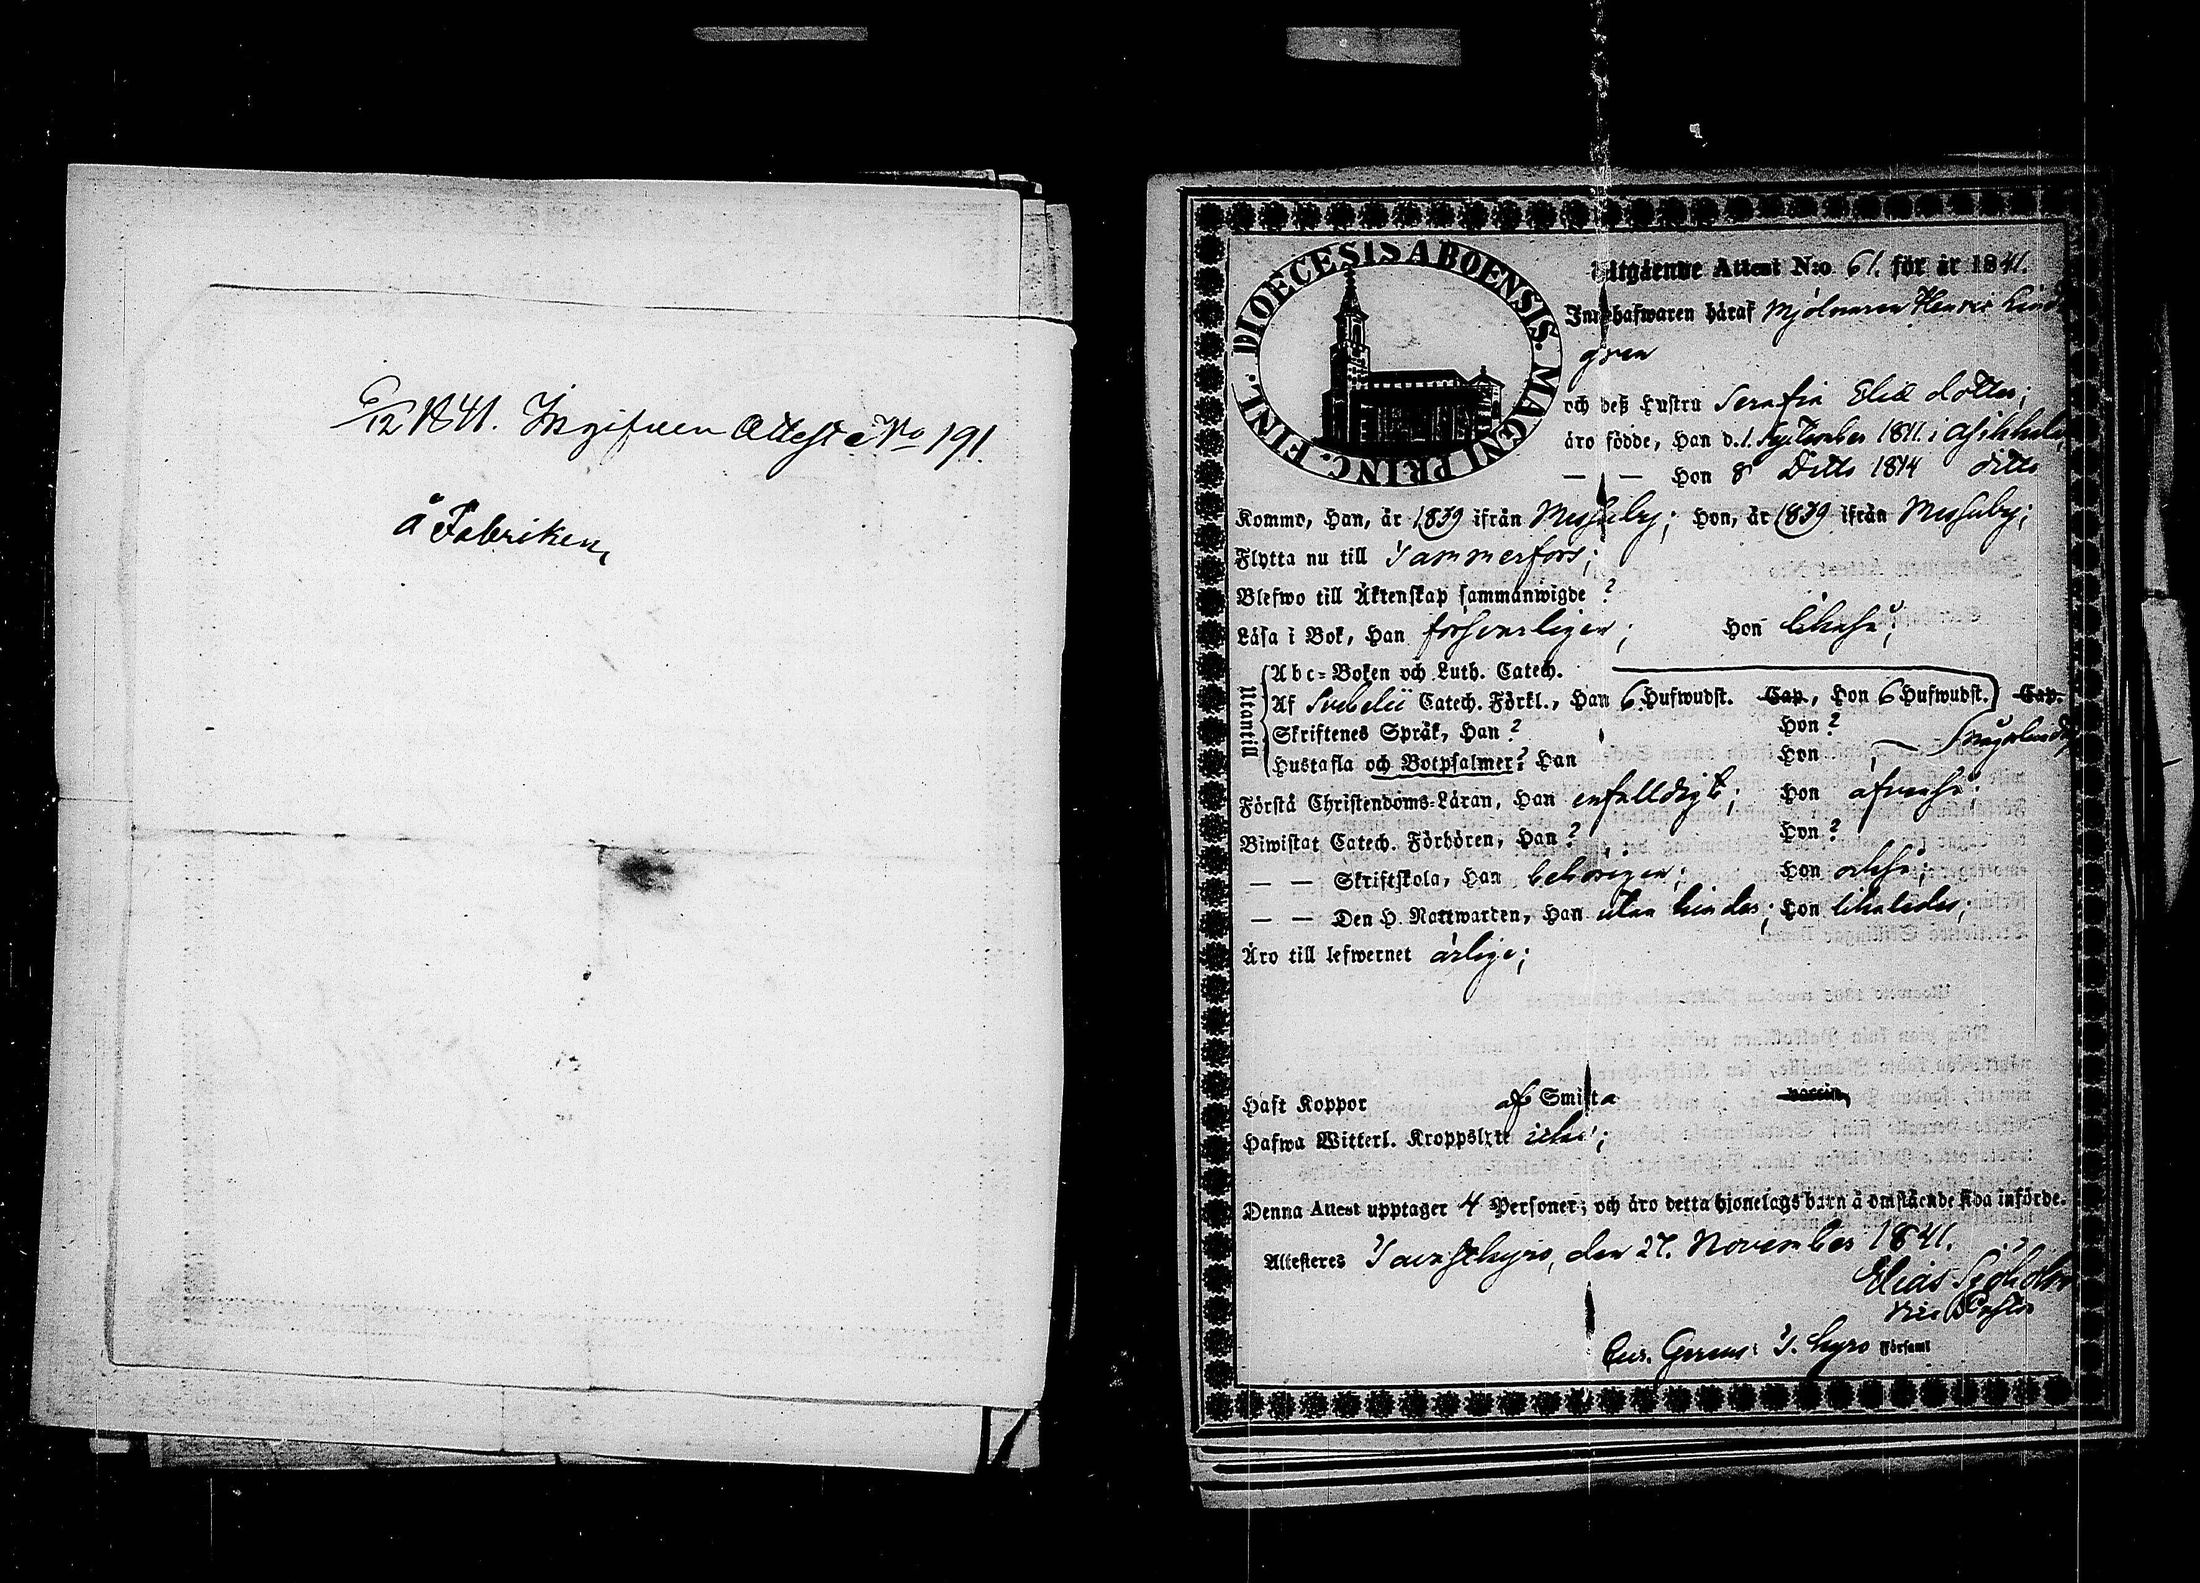 6/12 1841. Ingifven Attest No 191.
å Fabriken,
DIOECESIS ABOENSIS. MAGNI PRINC. FINL.
Utgående Attest N:o 61. för år 1841.
Innehafwaren häraf Mjölnaren Henric Lind
gren
och deß Hustru Serafia Eliæ dotter;
äro födde, Han d. 1. September 1811. i Asikkala,
— — Hon 8 Ditto 1814 ditto
Kommo, Han, år 1839 ifrån Messuby; Hon, år 1839 ifrån Messuby;
Flytta nu till Tammerfors;
Blefwo till Äktenskap sammanwigde ?
Läsa i Bok, Han försvarligen; Hon likaså;
Utantill
Abc-Boken och Luth. Catech.
Af Svebelii Catech. Förkl., Han 6 Hufwudst. Cap., Hon 6 Hufwudst. Cap.
Skriftenes Språk, Han ? Hon ?
Hustafla och Botpsalmer ? Han Hon ; —
Förstå Christendoms-Läran, Han enfalldigt; Hon äfvenså.
Biwistat Catech. Förhören, Han ? Hon ?
— — Skriftskola, Han behörigen; Hon också;
— — Den H. Nattwarden, Han utan hinder; Hon likaledes;
Äro till lefwernet ärlige;
Haft Koppor af Smitta
Hafwa Witterl. Kroppslyte icke;
Denna Attest upptager 4 Personer; och äro detta hjonelags barn å omstående sida införde.
Attesteres Tavastkyro, den 27. November 1841.
Elias
Vice Pastor
Cur. Gerens i T. kyro Församl